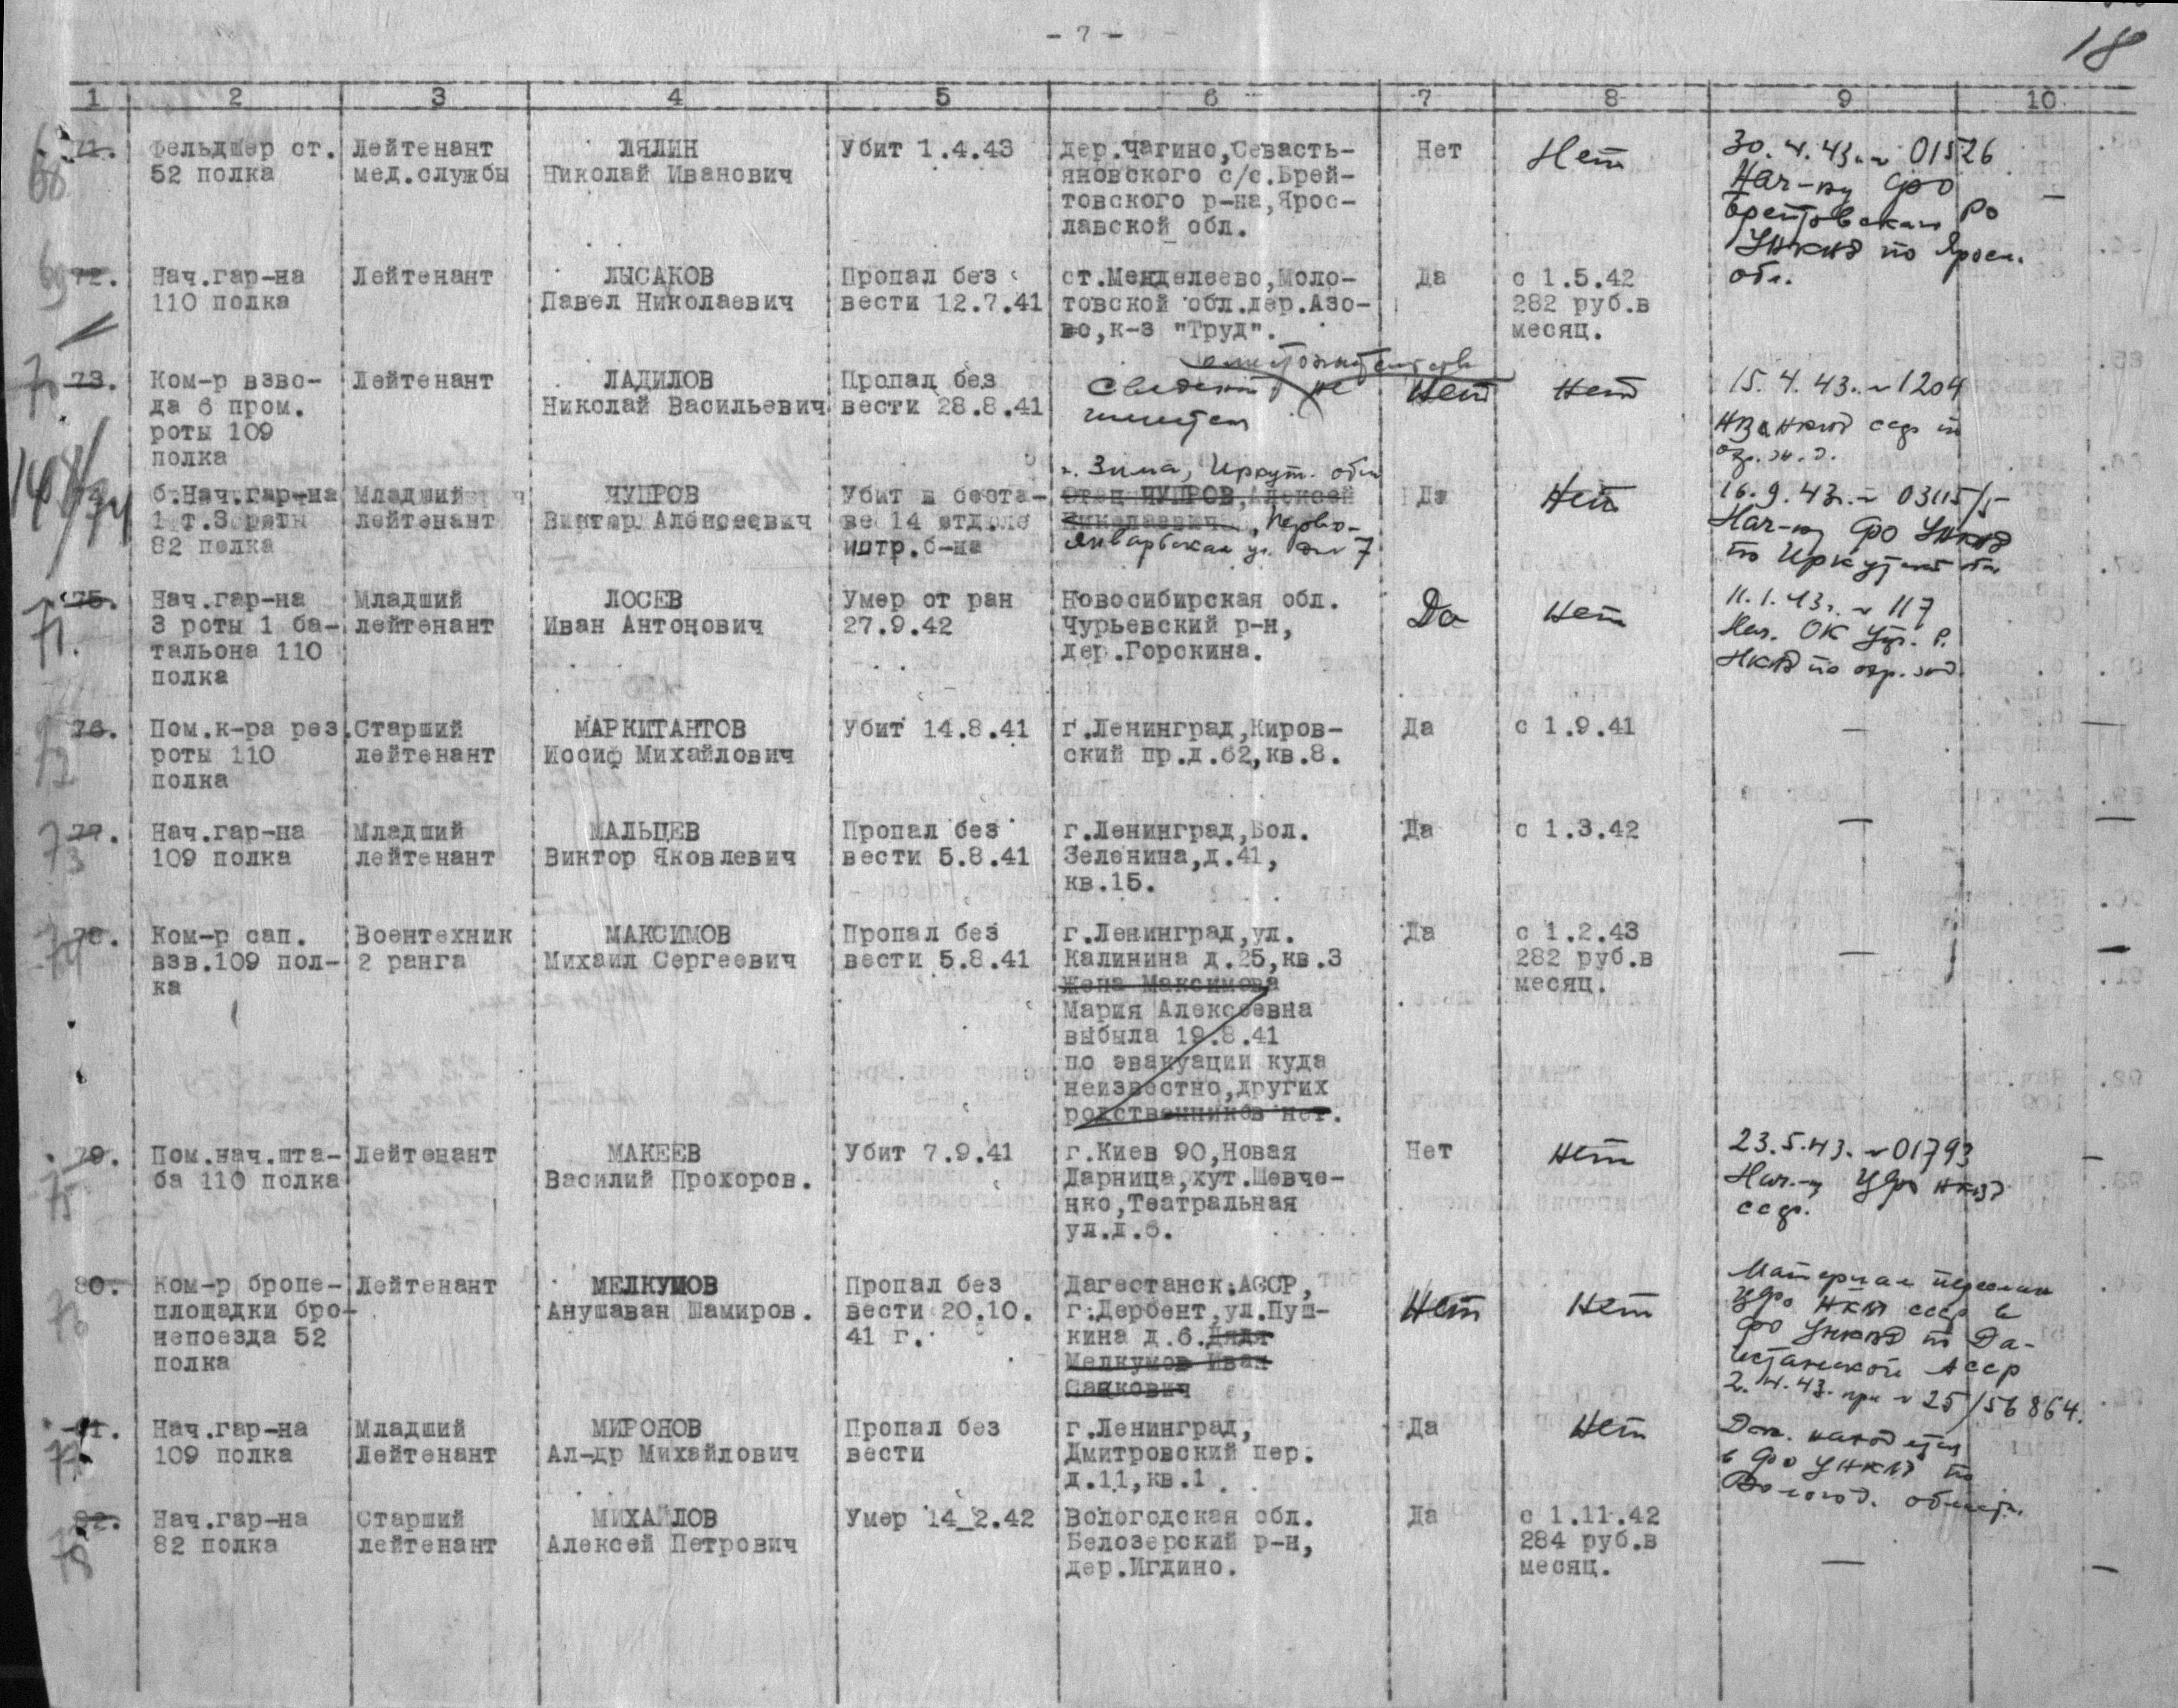 - 7 -
18
1 2 3 4 5 6 7 8 9 10
68
71. Фельдшер ст. Лейтенант ЛЯЛИН Убит 1.4.43 дер.Чагино,Севасть- Нет Нет 30.4.43г. № 01526
52 полка мед.службы Николай Иванович яновского с/с.Брей- Нач-ку ФО
товского р-на,Ярос- Брейтовского РО —
лавской обл. УНКВД по Яросл.
обл.
69
72. Нач.гар-на Лейтенант ЛЫСАКОВ Пропал без ст.Менделеево,Моло- Да с 1.5.42
110 полка Павел Николаевич вести 12.7.41 товской обл.дер.Азо- 282 руб.в
во,к-з "Труд". месяц.
70
73. Ком-р взво- Лейтенант ЛАДИЛОВ Пропал без Сведений не Нет Нет 15.4.43г. № 1204
да 6 пром. Николай Васильевич вести 28.8.41 имеется
роты 109 НКВД ссср по
полка охр. ж.д.
г. Зима, Иркут. обл
74. б.Нач.гар-на Младший ЧУПРОВ Убит в соста- Отец ЧУПРОВ,Алексей Да Нет 16.9.43г. № 03115/5
1 т.3 роты лейтенант Виктор Алексеевич ве 14 отд. Николаевич, Перво- Нач-ку ФО УНКВД
82 полка истр.б-на Январская ул. дом 7 по Иркутской обл
71.
75. Нач.гар-на Младший ЛОСЕВ Умер от ран Новосибирская обл. Да Нет 11.1.43г. № 117
3 роты 1 ба- лейтенант Иван Антонович 27.9.42 Чурьевский р-н, Нач. ОК Упр. В.
тальона 110 дер.Горскина. НКВД по охр. жд
полка
72
76. Пом.к-ра рез. Старший МАРКИТАНТОВ Убит 14.8.41 г.Ленинград,Киров- Да с 1.9.41 — —
роты 110 лейтенант Иосиф Михайлович ский пр.д.62,кв.8.
полка
73
77. Нач.гар-на Младший МАЛЬЦЕВ Пропал без г.Ленинград,Бол. Да с 1.3.42 — —
109 полка лейтенант Виктор Яковлевич вести 5.8.41 Зеленина,д.41,
кв.15.
74
78. Ком-р сап. Воентехник МАКСИМОВ Пропал без г.Ленинград,ул. Да с 1.2.43 — —
взв.109 пол- 2 ранга Михаил Сергеевич вести 5.8.41 Калинина д.25,кв.3 282 руб.в
ка Жена Максимова месяц.
Мария Алексеевна
выбыла 19.8.41
по эвакуации куда
неизвестно,других
родственников нет.
75
79. Пом.нач.шта- Лейтенант МАКЕЕВ Убит 7.9.41 г.Киев 90,Новая Нет Нет 23.5.43г. № 01793 —
ба 110 полка Василий Прохоров. Дарница,хут.Шевче- Нач.-ку УФО НКВД
нко,Театральная ссср.
ул.д.6.
76
80. Ком-р броне- Лейтенант МЕЛКУМОВ Пропал без Дагестанск.АССР, Нет Нет Материал переслан
площадки бро- Анушаван Шамиров. вести 20.10. г.Дербент,ул.Пуш- УФО НКВД ссср в
непоезда 52 41 г. кина д.6.Дядя ФО УНКВД по Да-
полка Мелкумов Иван гестанской АССР
Саакович 2.4.43. при № 25/56864.
77
81. Нач.гар-на Младший МИРОНОВ Пропал без г.Ленинград, Да Нет Док. находятся
109 полка Лейтенант Ал-др Михайлович вести Дмитровский пер. в ФО УНКВД по
д.11,кв.1 Вологод. области.
78
82. Нач.гар-на Старший МИХАЙЛОВ Умер 14_2.42 Вологодская обл. Да с 1.11.42 — —
82 полка лейтенант Алексей Петрович Белозерский р-н, 284 руб.в
дер.Игдино. месяц.